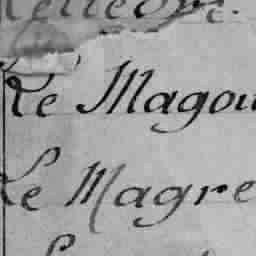 Le Magou
Le Magre